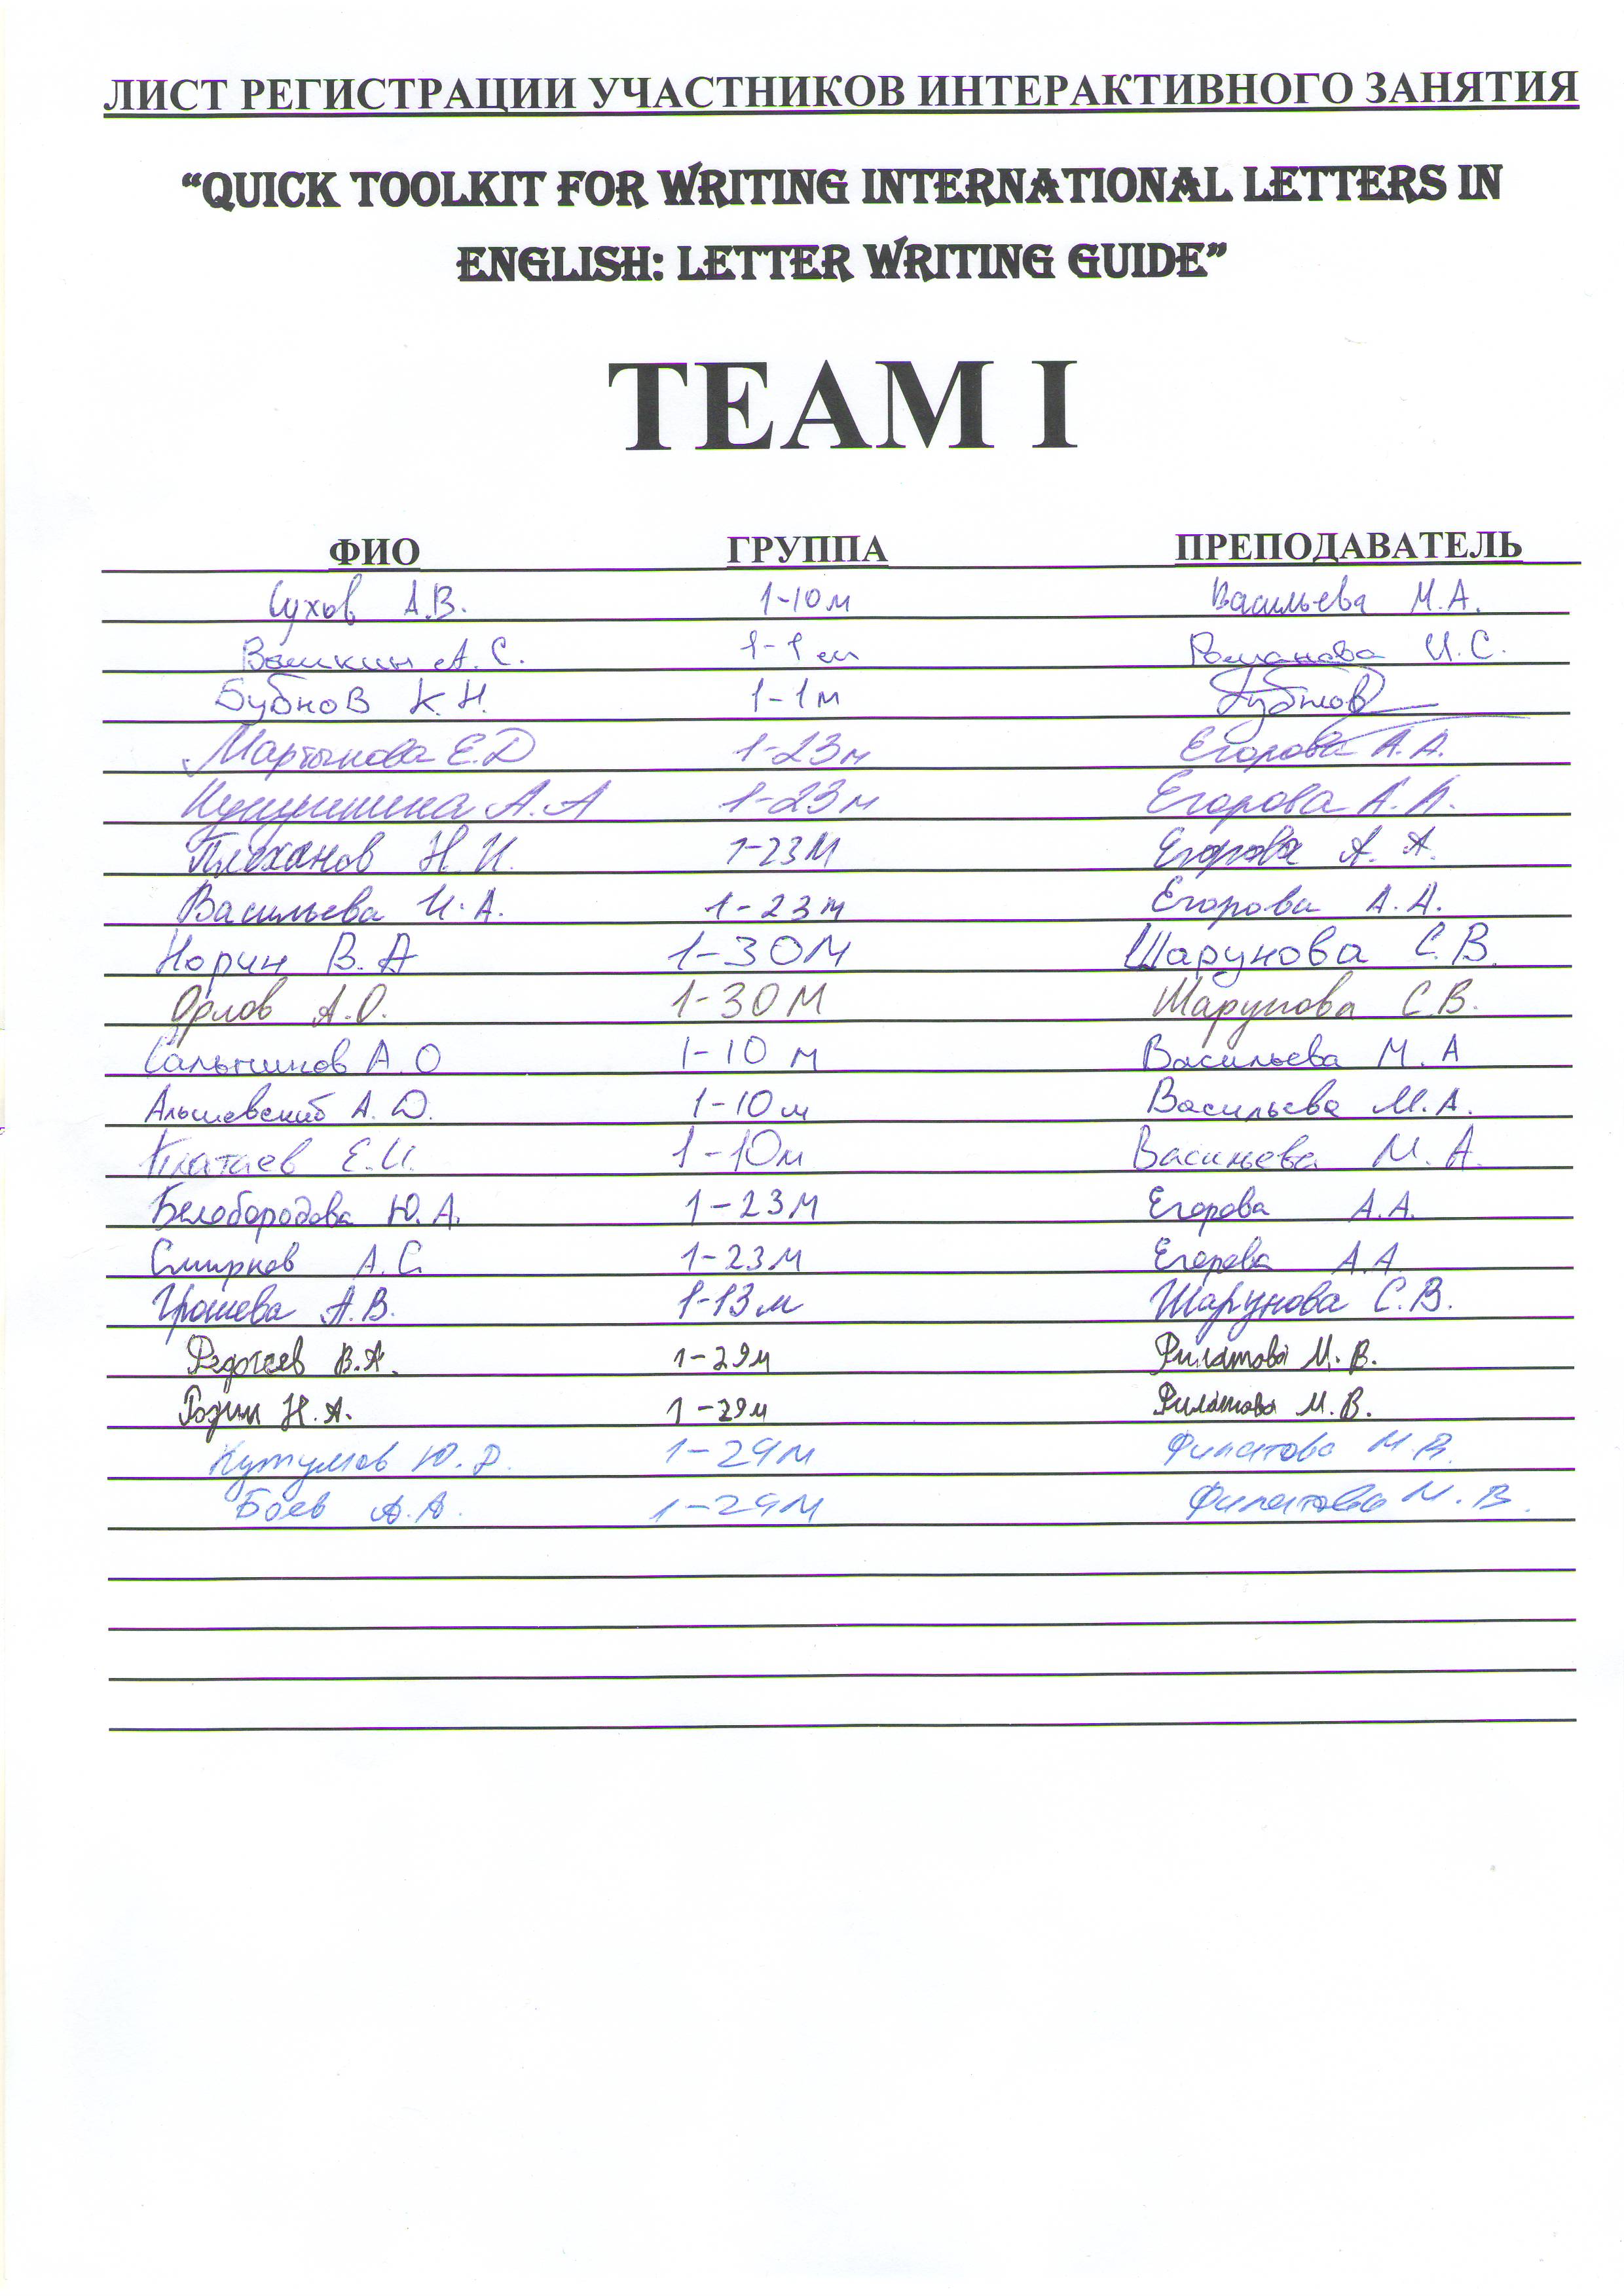 ЛИСТ РЕГИСТРАЦИИ УЧАСТНИКОВ ИНТЕРАКТИВНОГО ЗАНЯТИЯ
“QUICK TOOLKIT FOR WRITING INTERNATIONAL LETTERS IN
ENGLISH: LETTER WRITING GUIDE”
TEAM I
ФИО ГРУППА ПРЕПОДАВАТЕЛЬ
Сухов А.В. 1-10м Васильева М.А.
А.С. 1-1м Романова И.С.
Бубнов К.Н. 1-1м
Мартынова Е.Д 1-23м Егорова А.А.
А.А 1-23м Егорова А.А.
Плеханов Н.И. 1-23М Егорова А.А.
Васильева И.А. 1-23м Егорова А.А.
Норин В.А 1-30М Шарунова С.В.
Орлов А.О. 1-30М Шарунова С.В.
Сальников А.О 1-10 м Васильева М.А
Альшевский А.Д. 1-10м Васильева М.А.
Е.И. 1-10м Васильева М.А.
Белобородова Ю.А. 1-23М Егорова А.А.
Смирнов А.С. 1-23М Егорова А.А.
Грошева А.В. 1-13м Шарунова С.В.
В.А. 1-29м Филатова М.В.
Родин Н.А. 1-29м Филатова М.В.
Ю.Р. 1-29м Филатова М.В.
Боев А.А. 1-29М Филатова М.В.